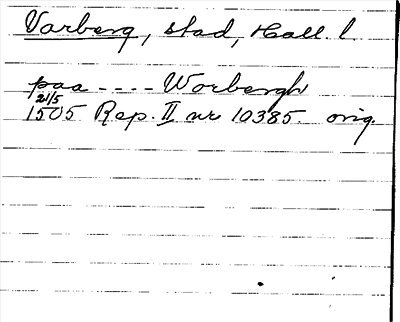 Varberg, stad, Hall. l.
paa ---- Worbergh
21/5
1505 Rep. II nr 10385. orig.